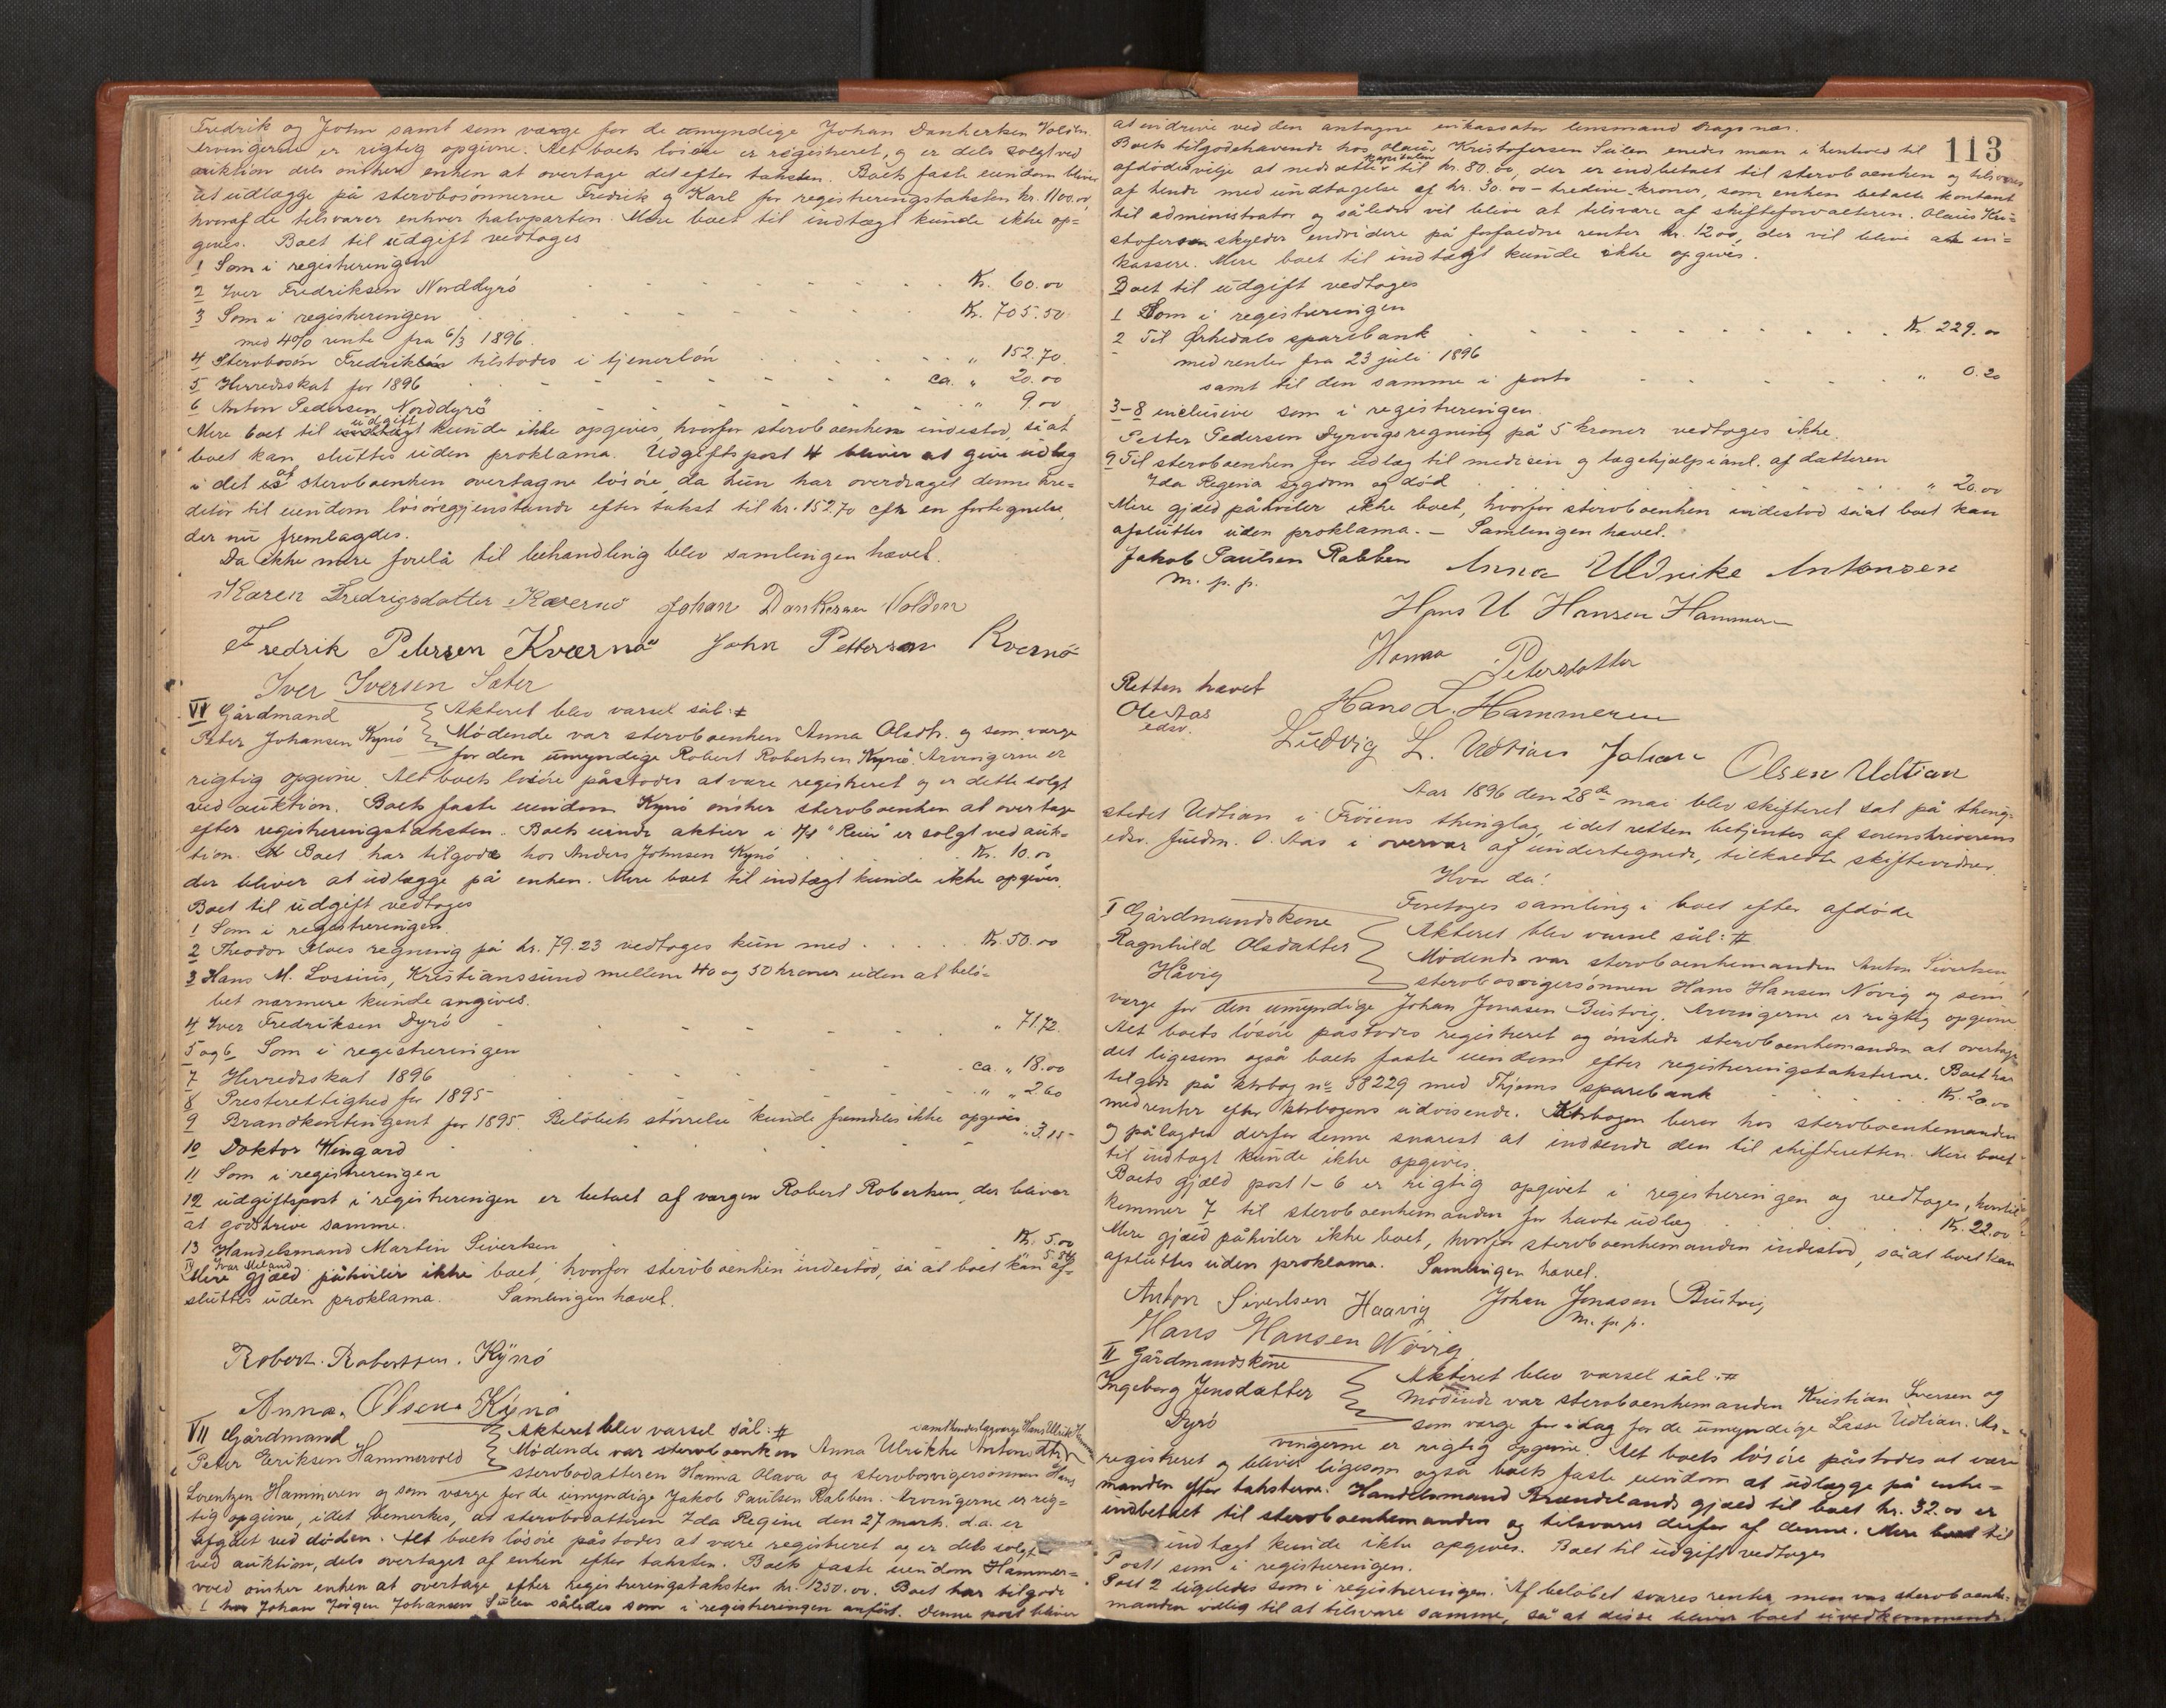 Fredrik og John samt som værge for de umyndige Johan Dankertsen Volden.
Arvingerne er rigtig opgivne. Alt boets løsöre er registreret, og er dels solgt ved
auktion dels önsker enken at overtage det efter taksten. Boets faste eiendom bliver
at udlægge på sterbosönnerne Fredrik og Karl for registreringstaksten kr. 1100.00,
hvoraf de tilsvarer enhver halvparten. Mere boet til indtægt kunde ikke op=
gives. Boet til udgift vedtoges
1 Som i registreringen
2 Iver Fredriksen Norddyrö Kr. 60.00
3 Som i registreringen Kr. 705.50
med 4% rente fra 6/3 1896.
4 Sterbosön Fredrik tilstodes i tjenerlön " 152.70.
5 Herredsskat for 1896 ca. " 20.00
6 Anton Pedersen Norddyrö " 9.00
Mere boet til udgift kunde ikke opgives, hvorfor sterboenken indestod, så at
boet kan sluttes uden proklama. Udgiftspost 4 bliver at give udlæg
i det af sterboenken overtagne lösöre, da hun har overdraget denne kre=
ditor til eiendom lösöregjenstande efter takst til kr. 152.70 cfr en fortegnelse,
der nu fremlagdes.
Da ikke mere forelå til behandling blev samlingen hævet.
Karen Fredrigsdatter Kværnö Johan Dankersen Volden
Fredrik Petersen Kværnö John Pettersen Kvernö
Iver Iversen Sæter
VI Gårdmand
Peter Johansen Kynö
Akteret blev varsel sål: #
Mödende var sterboenken Anna Olsdtr. og som værge
for den umyndige Robert Robertsen Kynö. Arvingerne er
rigtig opgivne. Alt boets lösöre påstodes at være registreret og er dette solgt
ved auktion. Boets faste eiendom Kynö önsker sterboenken at overtage
efter registreringstaksten. Boets eiende aktier i "Rein" er solgt ved auk=
tion. Boet har tilgode hos Anders Johnsen Kynö Kr. 10.00
der bliver at udlægge på enken. Mere boet til indtægt kunde ikke opgives.
Boet til udgift vedtoges
1 Som i registreringen.
2 Theodor regning på kr. 79.23 vedtoges kun med Kr. 50.00
3 Hans M. Lossius, Kristianssund mellem 40 og 50 kroner uden at belö=
bet nærmere kunde angives.
4 Iver Fredriksen Dyrö " 71.72.
5 og 6 Som i registreringen
7 Herredsskat 1896 ca. " 18.00
8 Presterettighed for 1895 " " 2.60
9 Brandkontingent for 1895. Belöbets störrelse kunde fremdeles ikke opgives
10 Doktor Wingård " 3.15
11 Som i registreringen
12 udgiftspost i registreringen er betalt af værgen Robert Robertsen, der bliver
at godskrive samme.
13 Handelsmand Martin Sivertsen Kr. 5.00
Ivar Meland 5.84
Mere gjæld påhviler ikke boet, hvorfor sterboenken indestod, så at boet kan af=
sluttes uden proklama. Samlingen hævet.
Robert. Robertssen. Kynö
Anna. Olsen Kynö
VII Gårdmand
Peter Eriksen Hammervold
Akteret blev varsel sål: #
Mödende var sterboenken Anna Ulrikke Antonsdtr,
samt hendes lagværge Hans Ulrik
sterbodatteren Hanna Olava og sterbosvigersönnen Hans
Lorentzen Hammeren og som værge for de umyndige Jakob Paulsen Rabben. Arvingerne er rig=
tig opgivne, idet bemerkes, at sterbodatteren Ida Regine den 27 marts. d.a. er
afgået ved döden. Alt boets lösöre påstodes at være registreret og er dels solgt
ved auktion, dels overtaget af enken efter taksten. Boets faste eiendom Hammer=
vold önsker enken at overtage efter registreringstaksten kr. 1250.00. Boet har tilgode
1 hos Johan Jörgen Johansen Sulen således som i registreringen anfört. Denne post bliver
113
at inddrive ved den antagne inkassator lensmand Dragsnæs.
Boets tilgodehavende hos Olaus Kristofersen Sulen enedes man i henhold til
afdödes vilje at nedsætte kapitalen til kr. 80.00, der er indbetalt til sterboenken og tilsvares
af hende med undtagelse af kr. 30.00 - tredive kroner, som enken betalte kontant
til administrator og således vil blive at tilsvare af skifteforvalteren. Olaus Kri=
stofersen skylder endvidere på forfaldne renter kr. 12.00, der vil blive at in=
kassere. Mere boet til indtægt kunde ikke opgives.
Boet til udgift vedtoges
1 Som i registreringen
2 Til Ørkedals sparebank Kr. 229.00
med renter fra 23 juli 1896
samt til den samme i porto " 0.20
3-8 inclusive som i registreringen.
Petter Pedersen Dyrvigs regning på 5 kroner vedtoges ikke.
9 Til sterboenken for udlæg til medisin og lægehjælp i anl. af datteren
Ida Regina sygdom og död " 20.00
Mere gjæld påhviler ikke boet, hvorfor sterboenken indestod så at boet kan
afsluttes uden proklama. - Samlingen hævet.
Jakob Paulsen Rabben Anna Uldrike Antonsen
m. p. p.
Hans U Hansen Hammeren
Hanna Petersdatter
Retten hævet Hans L. Hammeren
Ole Aas
edsv.
Ludvig L. Udtian Johan Olsen Udtian
Aar 1896 den 28de mai blev skifteret sat på thing=
stedet Udtian i Fröiens thinglag, idet retten betjentes af sorenskriverens
edsv. fuldm. O. Aas i overvær af undertegnede, tilkaldte skiftevidner.
Hvor da:
Foretoges samling i boet efter afdöde
I Gårdmandskone
Ragnhild Olsdatter
Håvig
Akteret blev varsel sål: #
Mödende var sterboenkemanden Anton Sivertsen
sterbosvigersönnen Hans Hansen Növig og som
værge for den umyndige Johan Jonasen Bustvig. Arvingerne er rigtig opgivne
Alt boets lösöre påstodes registreret og önskede sterboenkemanden at overtage
det ligesom også boets faste eiendom efter registreringstaksterne. Boet har
tilgode på ktrbog no 58229 med Thjems sparebank Kr. 20.00
med renter efter ktrbogens udvisende. Ktrbogen beror hos sterboenkemanden
og pålagdes derfor denne snarest at indsende den til skifteretten. Mere boet
til indtægt kunde ikke opgives.
Boets gjæld post 1-6 er rigtig opgivet i registreringen og vedtoges, hvortil
kommer 7 til sterboenkemanden for havte udlæg Kr. 22.00
Mere gjæld påhviler ikke boet, hvorfor sterboenkemanden indestod, så at boet kan
afsluttes uden proklama. Samlingen hævet.
Anton Sivertsen Haavig Johan Jonasen Bustvig
m. p. p.
Hans Hansen Növig
II Gårdmandskone
Ingeborg Jensdatter
Dyrö
Akteret blev varsel sål: #
Mödende var sterboenkemanden Kristian Iversen og
som værge for idag for de umyndige Lasse Udtian. Ar=
vingerne er rigtig opgivne. Alt boets lösöre påstodes at være
registreret og bliver ligesom også boets faste eiendom at udlægge på enke=
manden efter taksterne. Handelsmand Brændelands gjæld til boet kr. 32.00 er
indbetalt til sterboenkemanden og tilsvares derfor af denne. Mere boet til
indtægt kunde ikke opgives. Boet til udgift vedtoges
Post 1 som i registreringen.
Post 2 ligeledes som i registreringen. Af belöbet svares renter, men var sterboenke=
manden villig til at tilsvare samme, så at disse bliver boet uvedkommende.